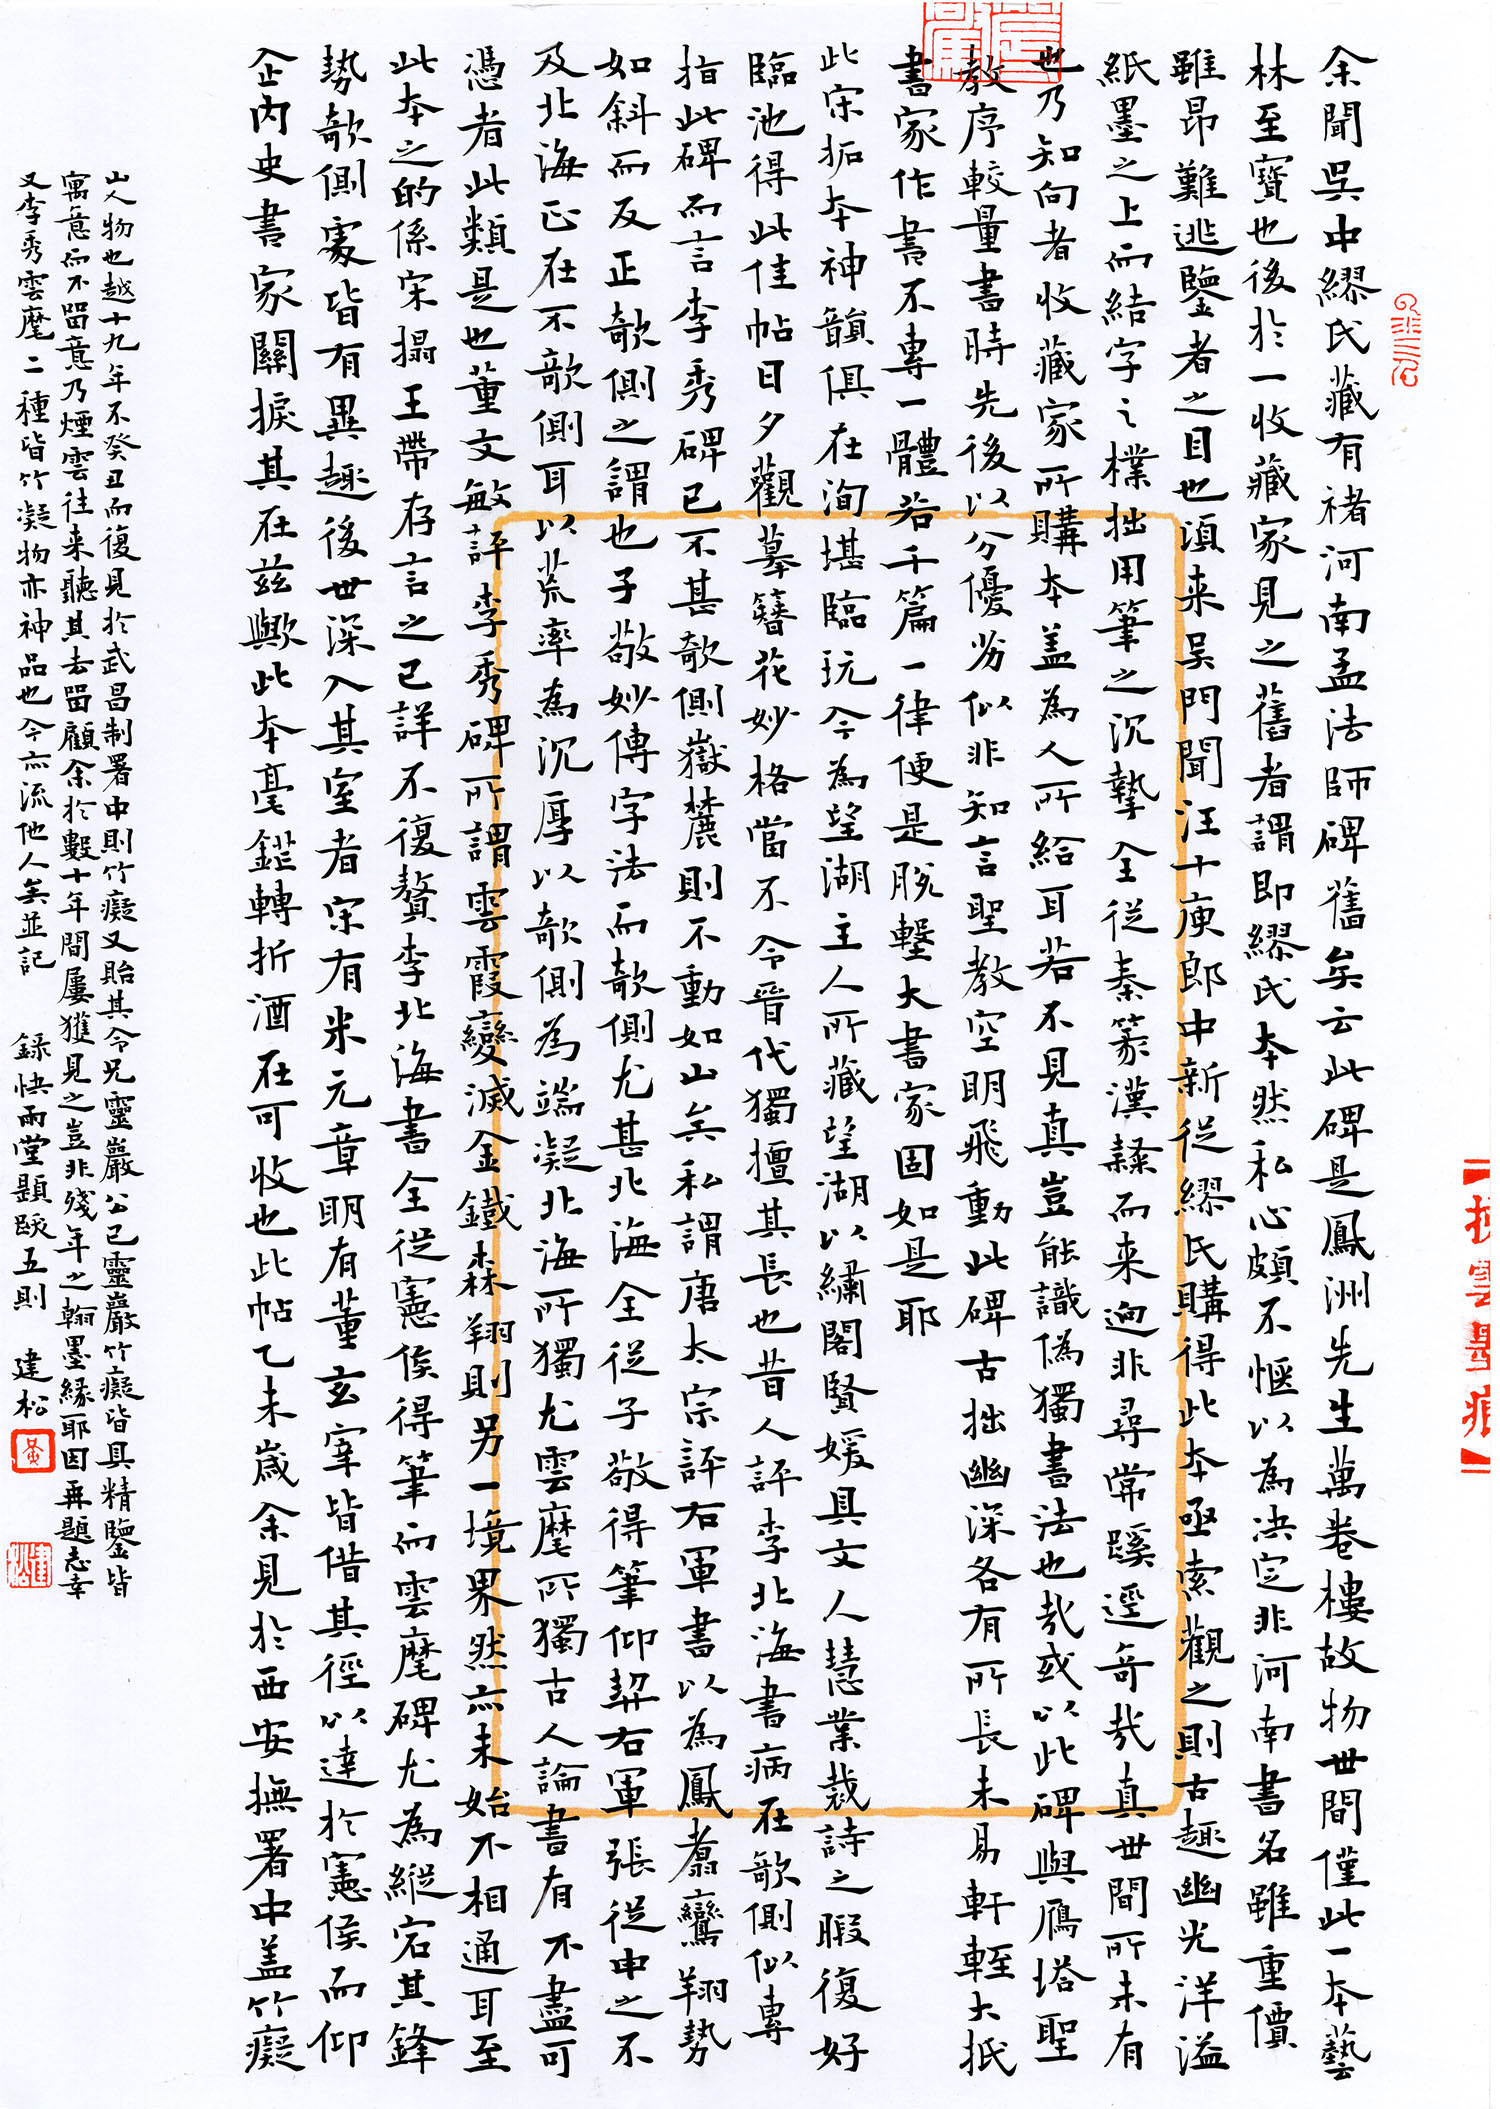 余聞吳中繆氏藏有褚河南孟法師碑舊矣云此碑是鳳洲先生萬卷樓故物世間僅此一本藝
林至寶也後於一收藏家見之舊者謂即繆氏本然私心頗不愜以為決定非河南書名雖重價
雖昂難逃鑒者之目也湏来吳門聞汪十庾郎中新從繆氏購得此本亟索觀之則古趣幽光洋溢
紙墨之上而結字之樸拙用筆之沉摯全從秦篆漢隸而来迥非尋常蹊逕奇哉真世間所未有
也乃知向者收藏家所購本盖為人所給耳若不見真豈能識偽獨書法也哉或以此碑與鴈塔聖
教序較量書時先後以分優劣似非知言聖教空明飛動此碑古拙幽深各有所長未易軒輊大抵
書家作書不專一體若千篇一律便是脫墼大書家固如是耶
此宋拓本神韻俱在洵堪臨玩今為望湖主人所藏望湖以繡閣賢媛具文人慧業裁詩之暇復好
臨池得此佳帖日夕觀摹簪花妙格當不令晉代獨擅其長也昔人評李北海書病在欹側似專
指此碑而言李秀碑已不甚欹側嶽麓則不動如山矣私謂唐太宗評右軍書以為鳳翥鸞翔勢
如斜而反正欹側之謂也子敬妙傳字法而欹側尤甚北海全從子敬得筆仰契右軍張從申之不
及北海正在不欹側耳以荒率為沉厚以欹側為端凝北海所獨尤雲麾所獨古人論書有不盡可
憑者此類是也董文敏評李秀碑所謂雲霞變滅金鐵森翔則另一境界然亦未始不相通耳至
此本之的係宋搨王帶存言之已詳不復贅李北海書全從憲侯得筆而雲麾碑尤為縱宕其鋒
勢欹側處皆有異趣後世深入其室者宋有米元章明有董玄宰皆借其徑以達於憲侯而仰
企內史書家關捩其在茲歟此本毫鋩轉折酒在可收也此帖乙未歲余見於西安撫署中盖竹癡
山人物也越十九年不癸丑而復見於武昌制署中則竹癡又貽其令兄靈巖公已靈巖竹癡皆具精鑒皆
寓意而不畱意乃煙雲往来聽其去畱顧余於數十年間屢獲見之豈非殘年之翰墨緣耶因再題志幸
又李秀雲麾二種皆竹凝物亦神品也今亦流他人矣並記 錄快雨堂題跋五則 建松